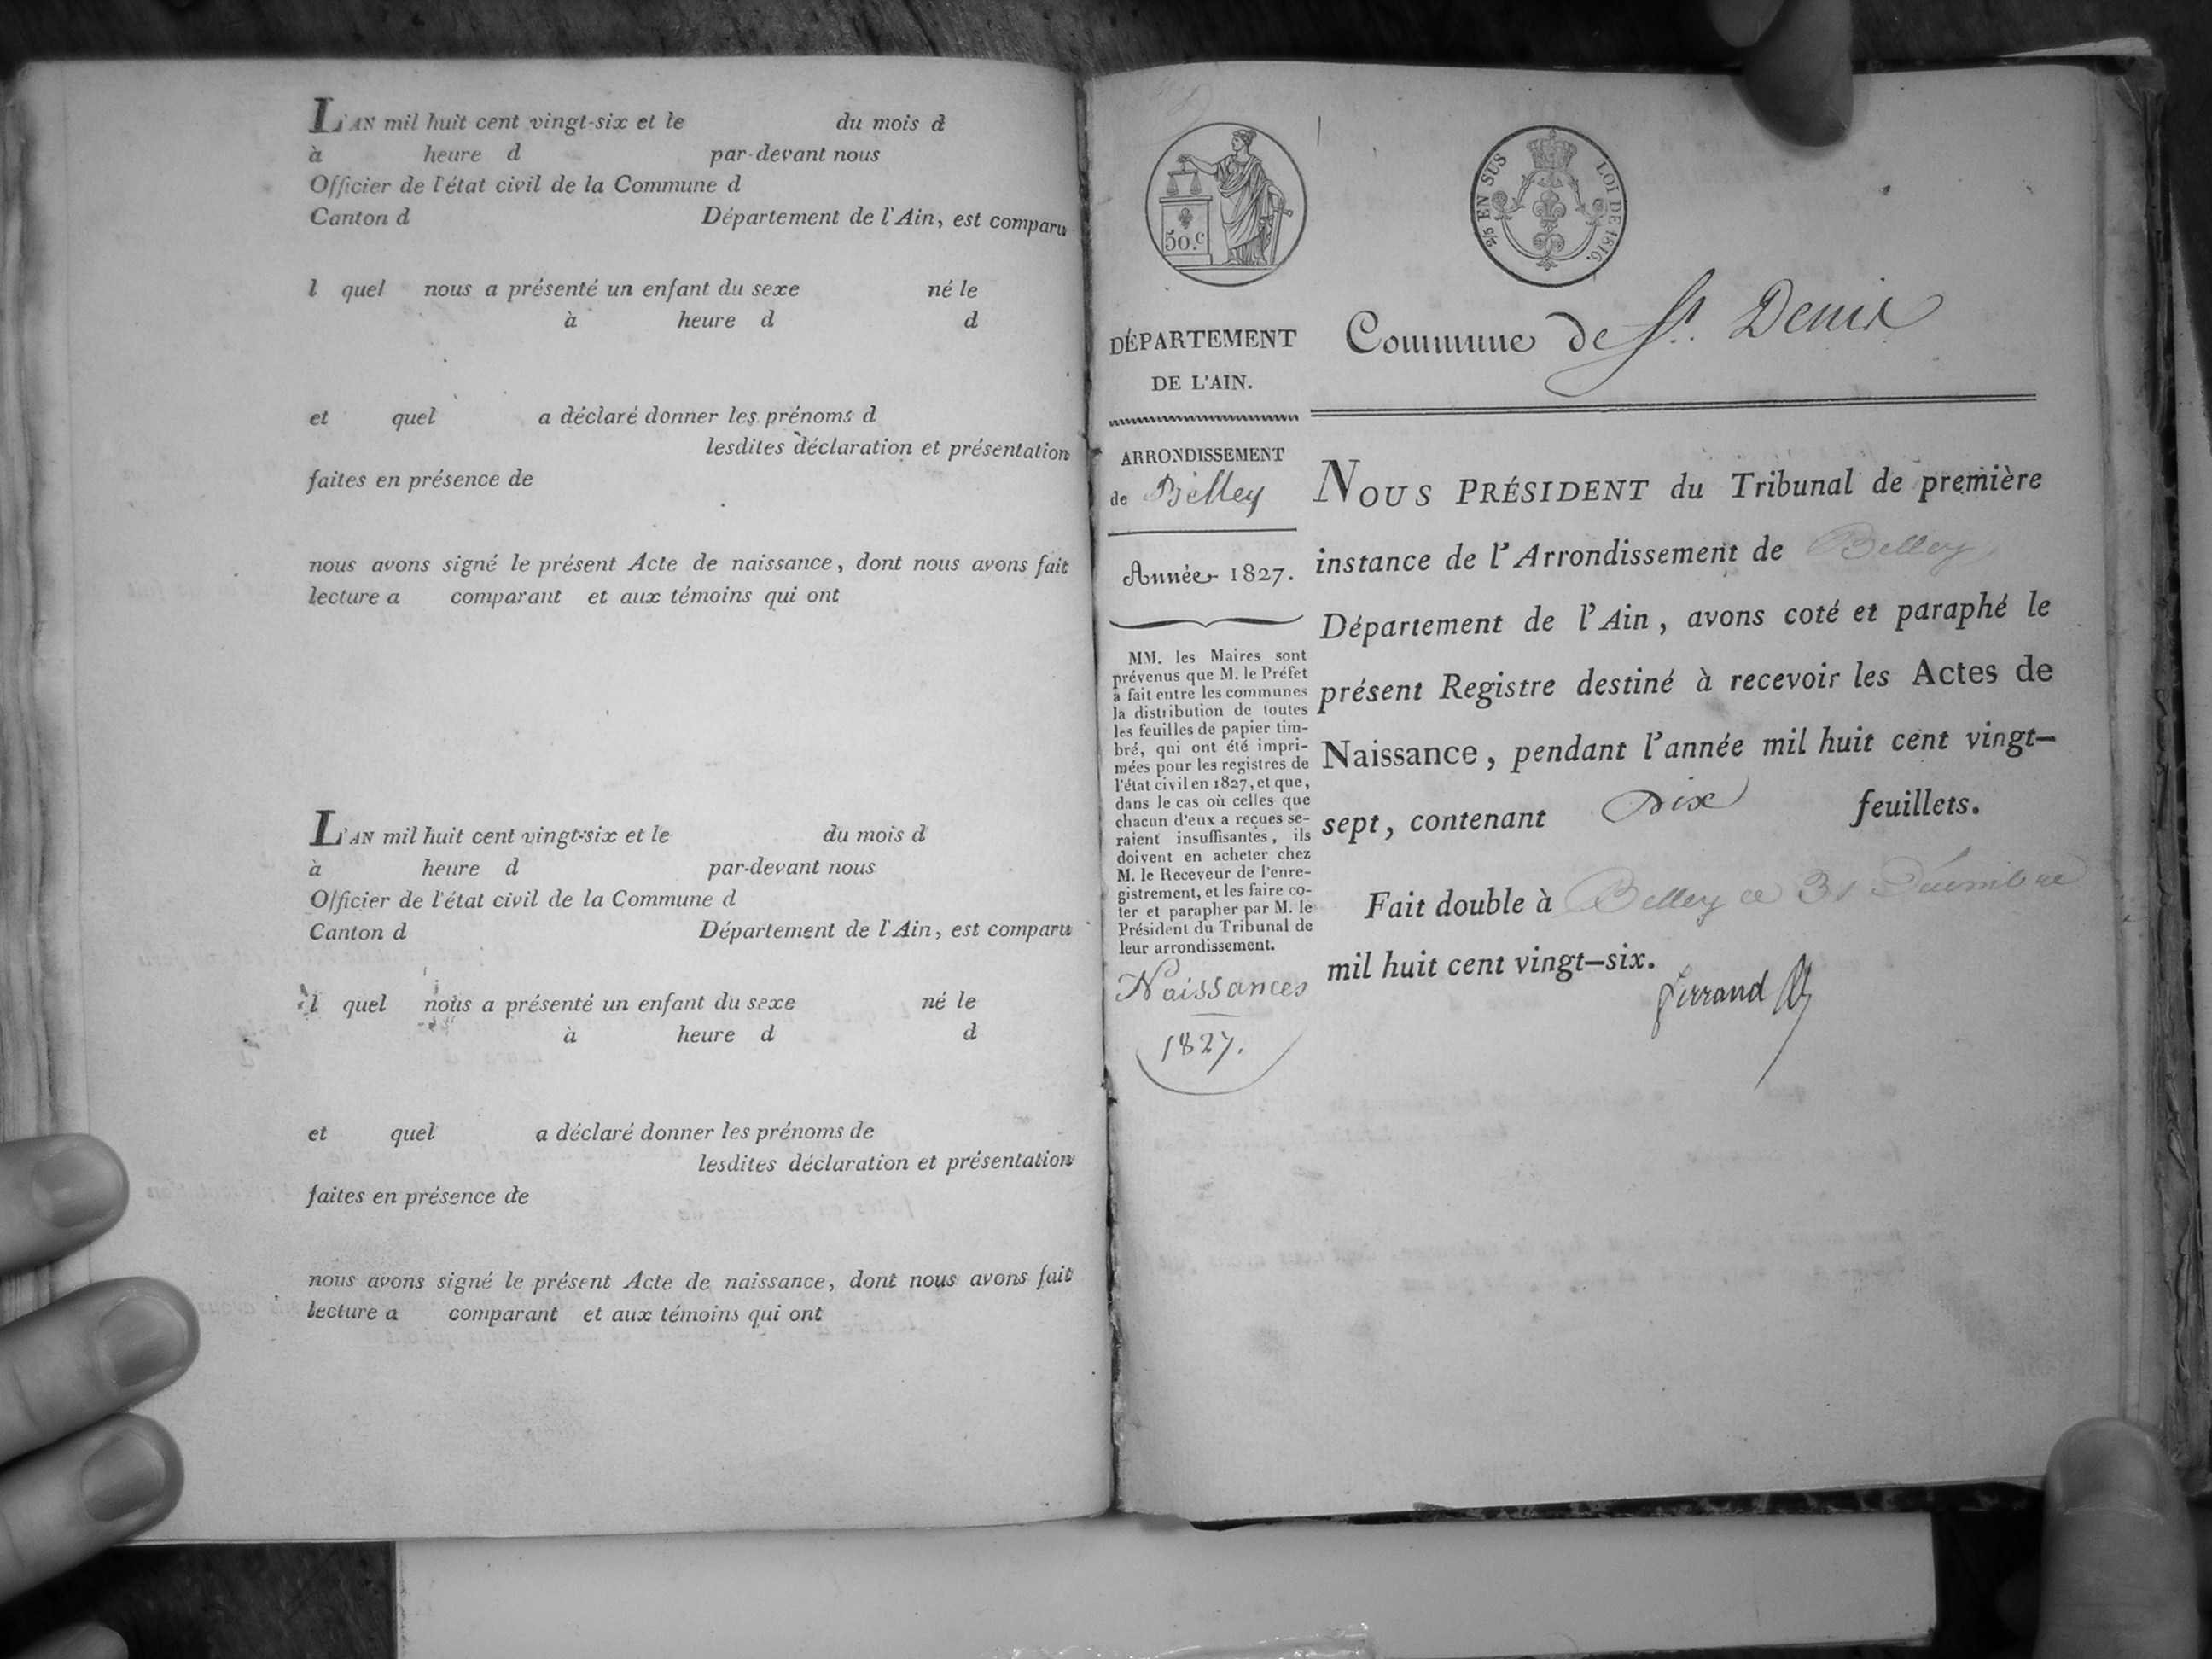 L'AN mil huit cent vingt-six et le du mois d
à heure d par-devant nous
Officier de l'état civil de la Commune d
Canton d Département de l'Ain, est comparu
l quel nous a présenté un enfant du sexe né le
à heure d d
et quel a déclaré donner les prénoms d
lesdites déclaration et présentation
faites en présence de
nous avons signé le présent Acte de naissance, dont nous avons fait
lecture a comparant et aux témoins qui ont
L'AN mil huit cent vingt-six et le du mois d
à heure d par-devant nous
Officier de l'état civil de la Commune d
Canton d Département de l'Ain, est comparu
l quel nous a présenté un enfant du sexe né le
à heure d d
et quel a déclaré donner les prénoms de
lesdites déclaration et présentation
faites en présence de
nous avons signé le présent Acte de naissance, dont nous avons fait
lecture a comparant et aux témoins qui ont
50.c
2/5 EN SUS LOI DE 1816.
DÉPARTEMENT
DE L'AIN.
ARRONDISSEMENT
de Belley
Année 1827.
MM. les Maires sont
prévenus que M. le Préfet
a fait entre les communes
la distribution de toutes
les feuilles de papier tim-
bré, qui ont été impri-
mées pour les registres de
l'état civil en 1827, et que,
dans le cas où celles que
chacun d'eux a reçues se-
raient insuffisantes, ils
doivent en acheter chez
M. le Receveur de l'enre-
gistrement, et les faire co-
ter et parapher par M. le
Président du Tribunal de
leur arrondissement.
Naissances
1827.
Commune de St. Denis
NOUS PRÉSIDENT du Tribunal de première
instance de l'Arrondissement de Belley
Département de l'Ain, avons coté et paraphé le
présent Registre destiné à recevoir les Actes de
Naissance, pendant l'année mil huit cent vingt-
sept, contenant Dix feuillets.
Fait double à Belley ce 31 Décembre
mil huit cent vingt-six.